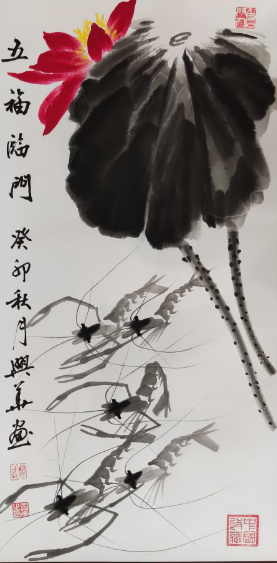 五福臨門
癸卯秋月興華畫